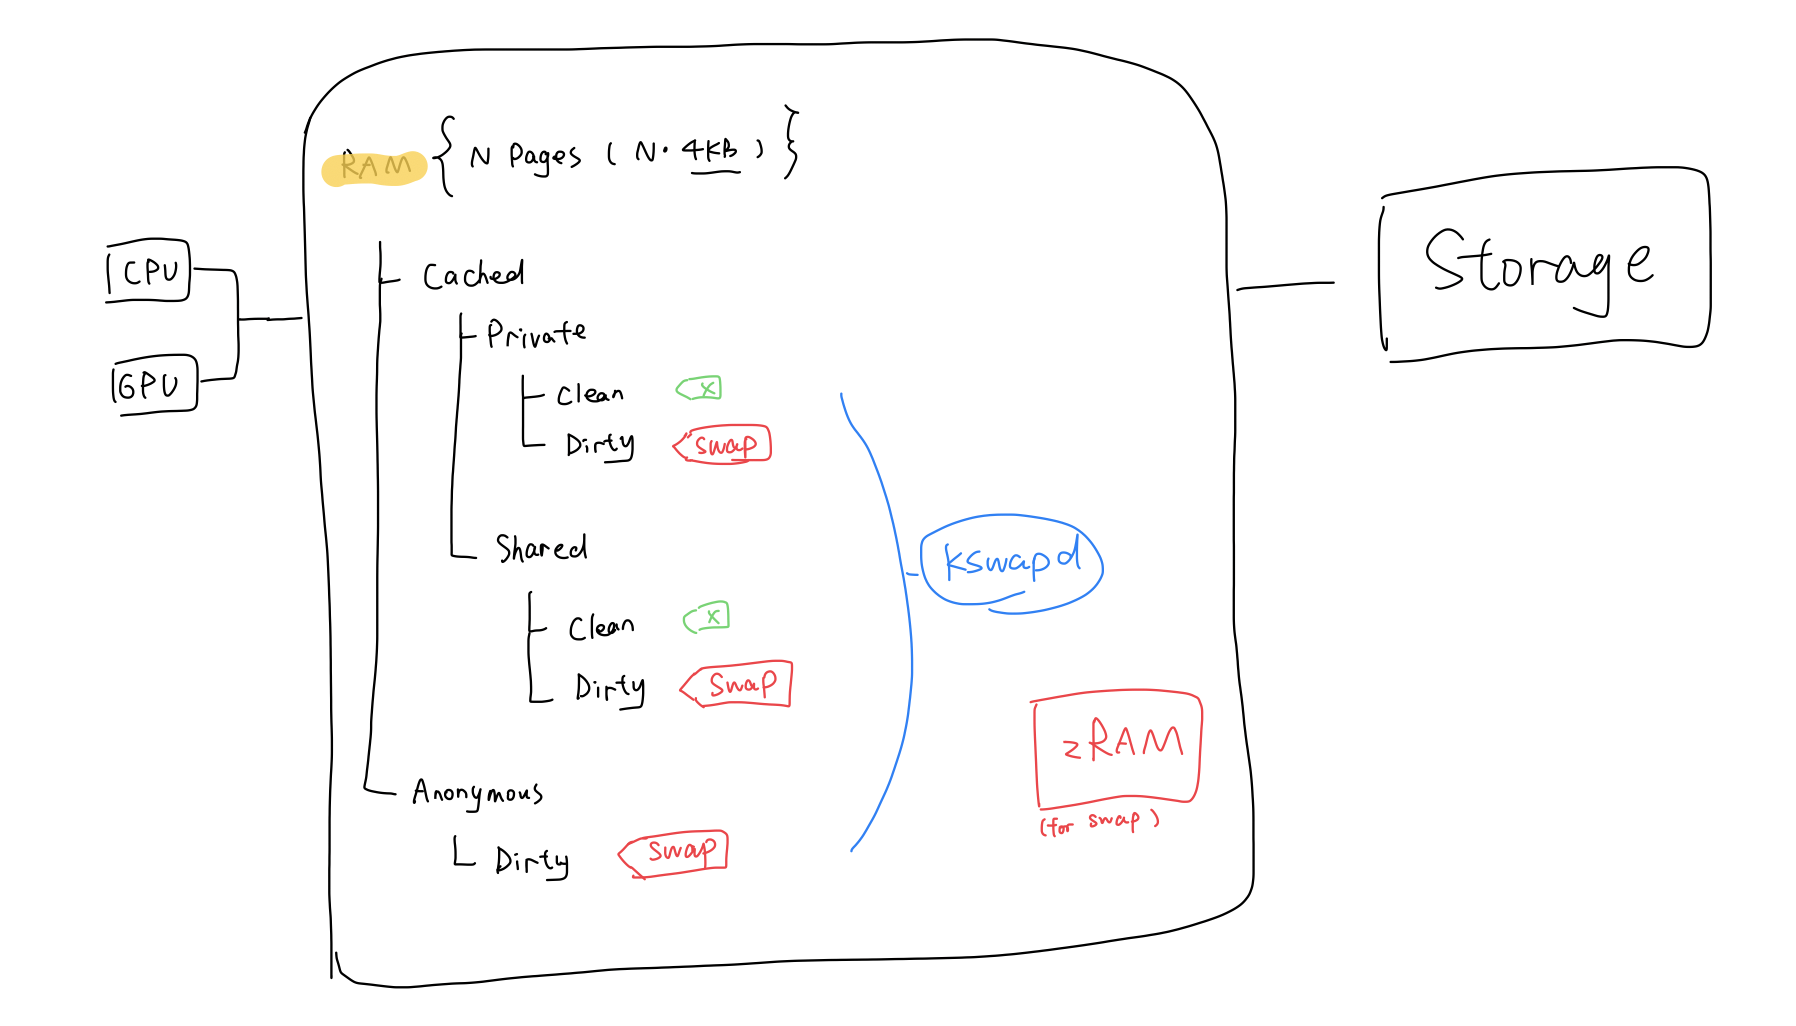 RAM { N Pages ( N · 4KB ) }
CPU
GPU
Cached
Private
Clean x
Dirty swap
Shared
Clean x
Dirty swap
Anonymous
Dirty swap
kswapd
zRAM
(for swap)
Storage